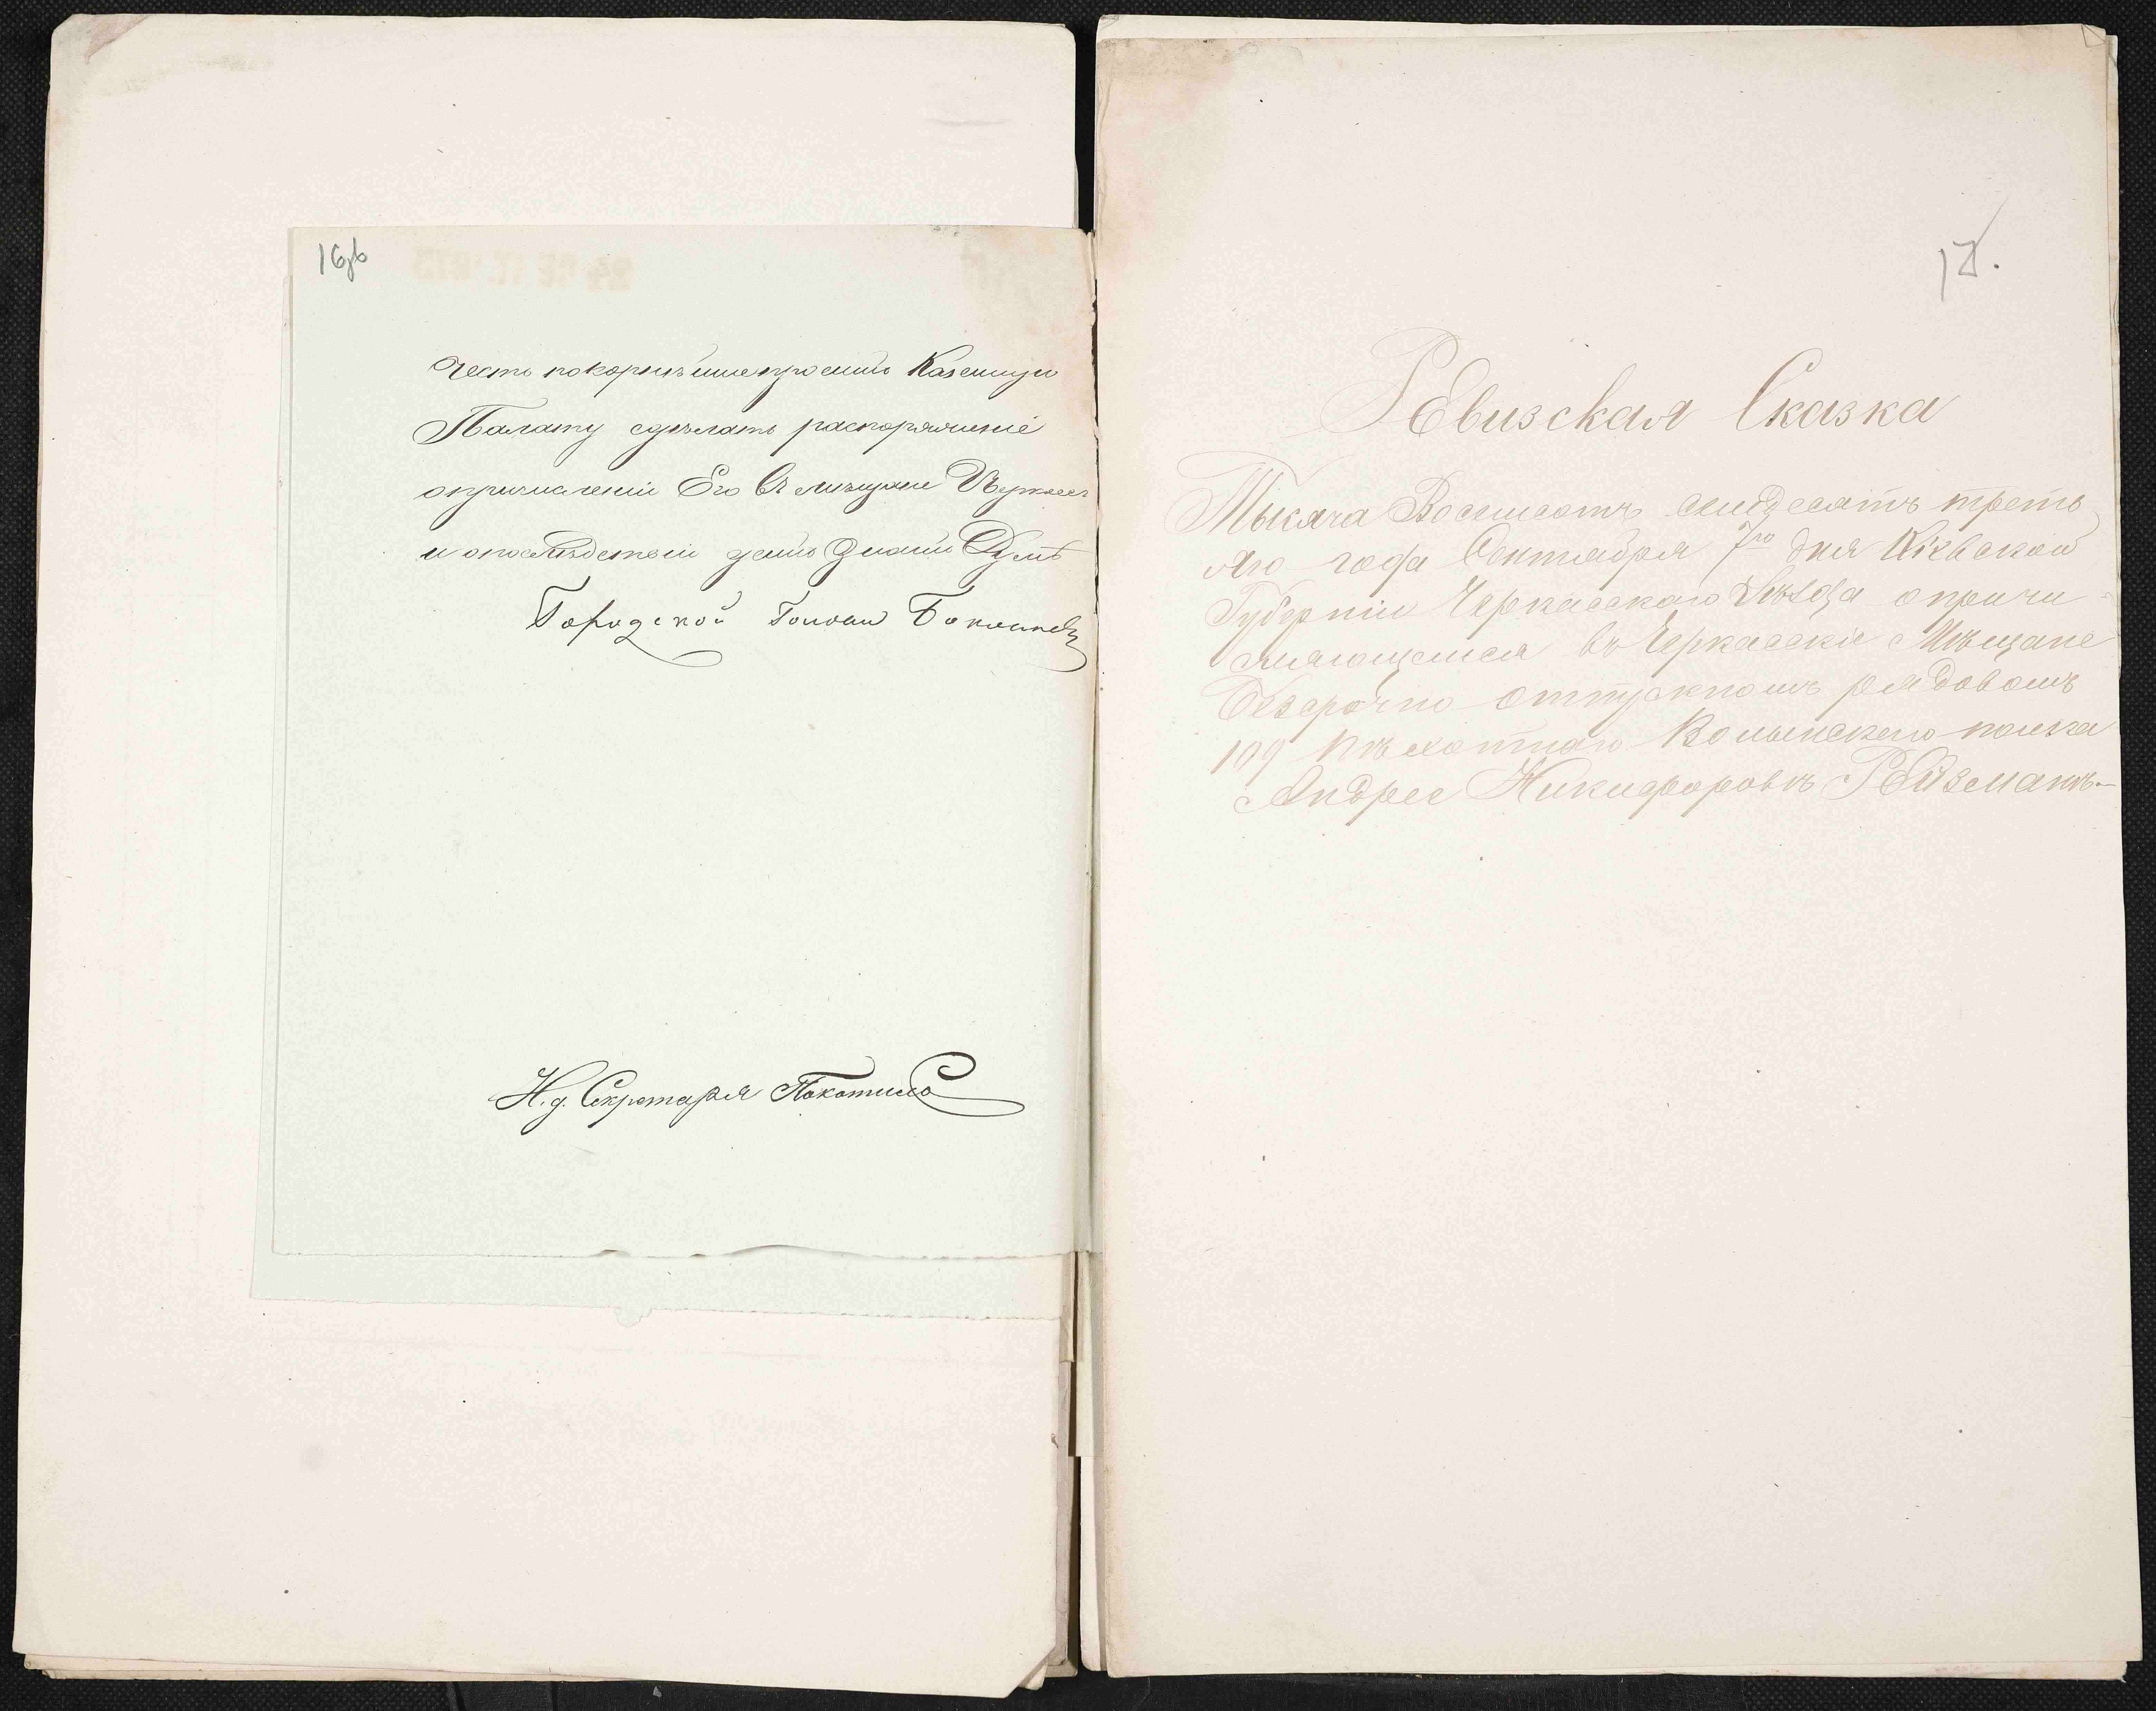 16об
честь покорнѣйше просить Казенную
Палату сдѣлать распоряженіе
о причисленіи Его въ мѣщане
и о послѣдствіи дать знать Думѣ
Городской Голова
И. д. Секретаря Покотило
17.
Ревизская Сказка
Тысяча Восмисотъ семдесятъ треть
яго года Сентября 7го дня Кіевской
Губерніи Черкасскаго Уѣзда о причи
сляющемся въ Черкасскіе Мѣщане
Безсрочно отпускномъ рядовомъ
109 пѣхотнаго Волынскаго полка
Андрее Никифоровъ Рейзманъ.